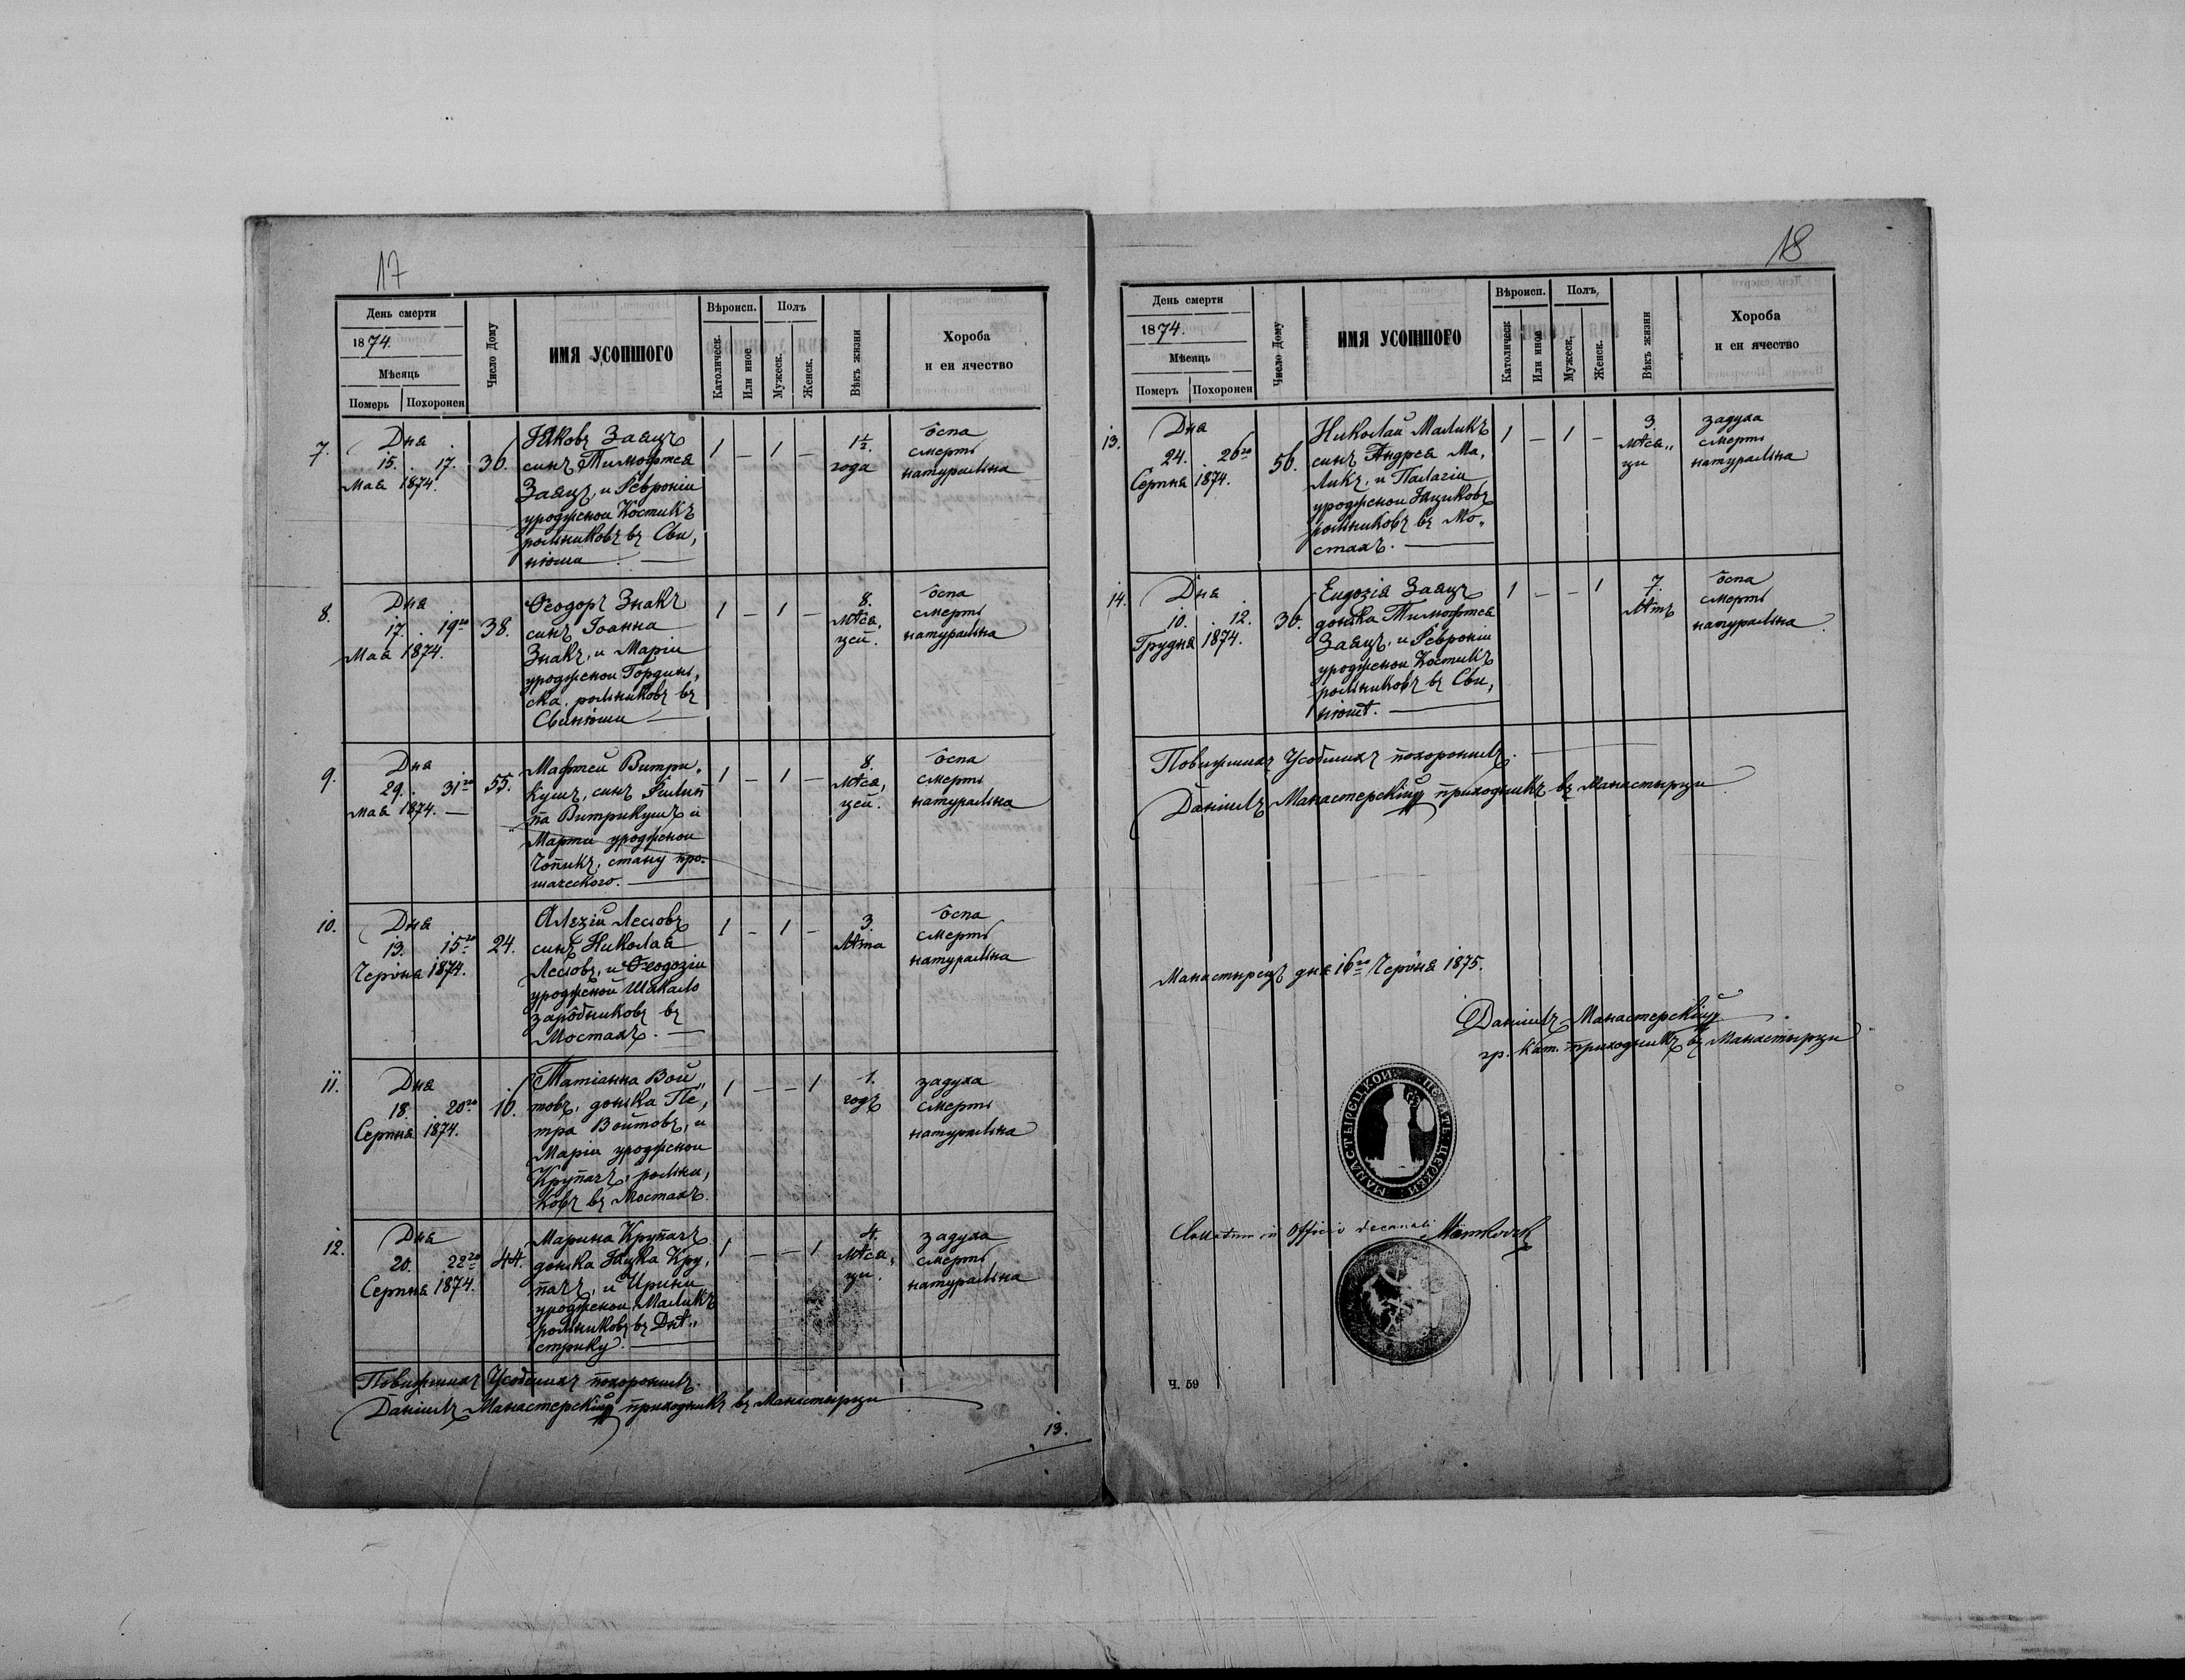 17
День смерти
1874.
Мѣсяць
Померь Похоронен
Число Дому
ИМЯ УСОПШОГО
Вѣроисп.
Католическ.
Или иное
Полъ
Мужеск.
Женск.
Вѣкъ жизни
Хороба
и еи ячество
7.
Дня
15. 17.
Мая 1874.
36.
Яковъ Заяцъ
синъ Тимофтея
Заяцъ, и Февроніи
урожденои Костикъ
рольниковъ въ Сви,
нюши
1 — 1 —
1½
года
ôспа
смерть
натуральна
8.
Дня
17. 19го
Мая 1874.
38.
Ѳеодоръ Знакъ
синъ Іоанна
Знакъ, и Маріи
урожденои Гординь,
ска, рольниковъ въ
Свинюши
1 — 1 —
8.
мѣся,
цей.
ôспа
смерть
натуральна
9.
Дня
29. 31го
Мая 1874. —
55.
Мафтей Витри,
кушъ, синъ Филип
па Витрикушъ и
Марти урожденои
Чопикъ, стану про,
шаческого.
1 — 1 —
8.
мѣся,
цей.
ôспа
смерть
натуральна
10.
Дня
13. 15го
Червня 1874.
24.
Алезій Лесювъ
синъ Николая
Лесювъ, и Ѳеодозіи
урожденой Шакало
зарôбниковъ въ
Мостахъ.
1 — 1 —
3.
лѣта
ôспа
смерть
натуральна
11.
Дня
18. 20го
Серпня 1874.
16.
Татіанна Вой,,
товъ, донька Пе,
тра Войтовъ, и
Маріи урожденои
Крупачъ, рольни,
ковъ въ Мостахъ.
1 — — 1
1.
годъ
задуха
смерть
натуральна
12.
Дня
20. 22го
Серпня 1874.
44.
Марина Крупачъ
донька Яцка Кру,
пачъ, и Ирини
урожденои Маликъ
рольниковъ въ Днѣ,,
стрику.
1 — — 1
4.
мѣся,
ци.
задуха
смерть
натуральна
Повижшихъ Усобшихъ похоронилъ.
Даніилъ Манастерскій приходникъ въ Манастирци
13.
18
День смерти
1874.
Мѣсяць
Померъ Похоронен
Число Дому
ИМЯ УСОПШОГО
Вѣроисп.
Католическ
Или иное
Полъ,
Мужеск.
Женск.
Вѣкъ жизни
Хороба
и еи ячество
13.
Дня
24. 26го
Серпня 1874.
56.
Николай Маликъ
синъ Андрея Ма,
ликъ, и Палагіи
урожденои Яциковъ
рольниковъ въ Мо,,
стахъ.
1 — 1 —
3.
мѣся,,
ци
задуха
смерть
натуральна
14.
Дня
10. 12.
Грудня 1874.
36.
Евдозія Заяцъ
донька Тимофтея
Заяцъ, и Февроніи
урожденои Костикъ
рольниковъ въ Сви,
нюшѣ.
1 — — 1
7.
лѣтъ
ôспа
смерть
натуральна
Повижшихъ Усобшихъ похоронилъ.
Даніилъ Манастерскій приходникъ въ Манастирци
Манастирецъ дня 16го Червня 1875.
Даніилъ Манастерскій
гр. кат. приходникъ въ Манастирци
Collatum in Officio decanali
Ч. 59